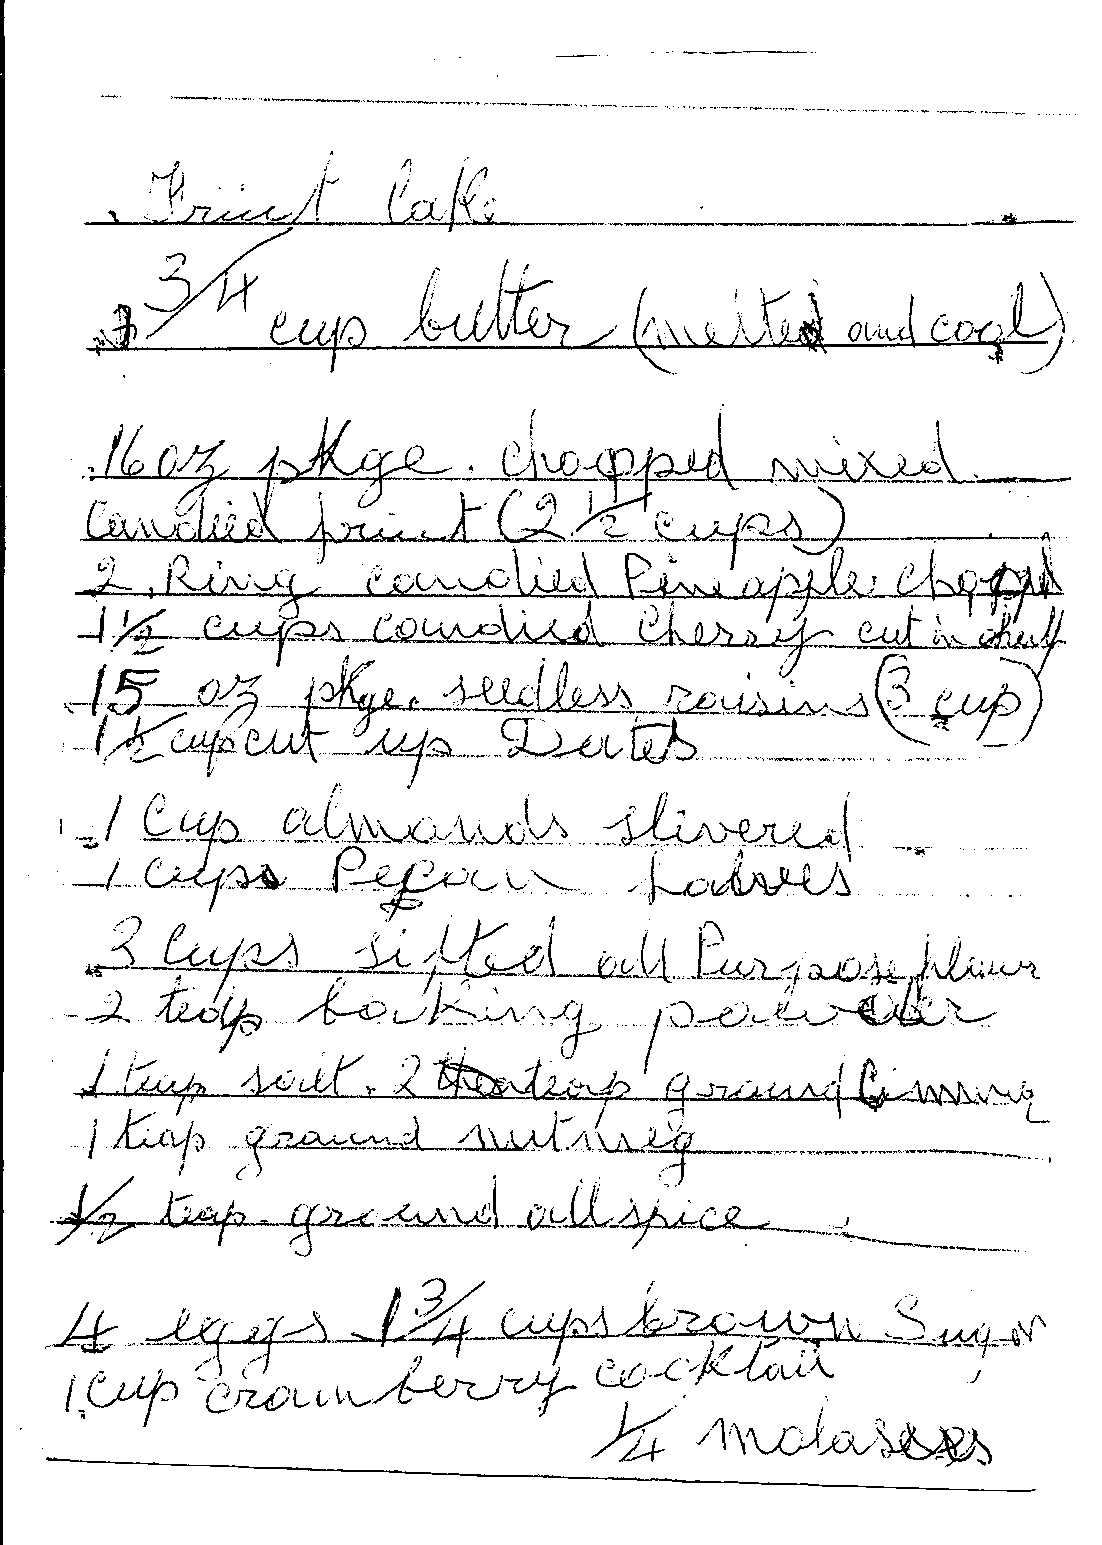 Fruit Cake
3/4 cup butter (melted and cool)
16 oz pkge. chopped mixed
candied fruit (2 1/2 cups)
2 Ring candied Pineapple chopped
1 1/2 cups candied Cherry cut in half
15 oz pkge. seedless raisins (3 cup)
1 1/2 cup cut up Dates
1 Cup almonds slivered
1 cups Pecan halves
3 Cups sifted all Purpose flour
2 teasp baking powder
1 teasp salt. 2 teasp ground
1 teasp ground nutmeg
1/2 teasp. ground allspice
4 eggs 1 3/4 cups brown Sugar
1 cup cranberry cocktail
1/4 molasses